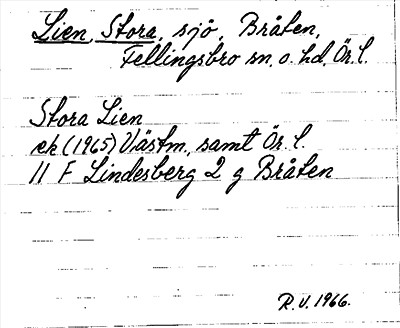 Lien, Stora, sjö, Bråten,
Fellingsbro sn. o. hd, Ör. l.
Stora Lien
ek (1965) Västm., samt Ör. l.
11 F Lindesberg 2 g Bråten
R.V. 1966.